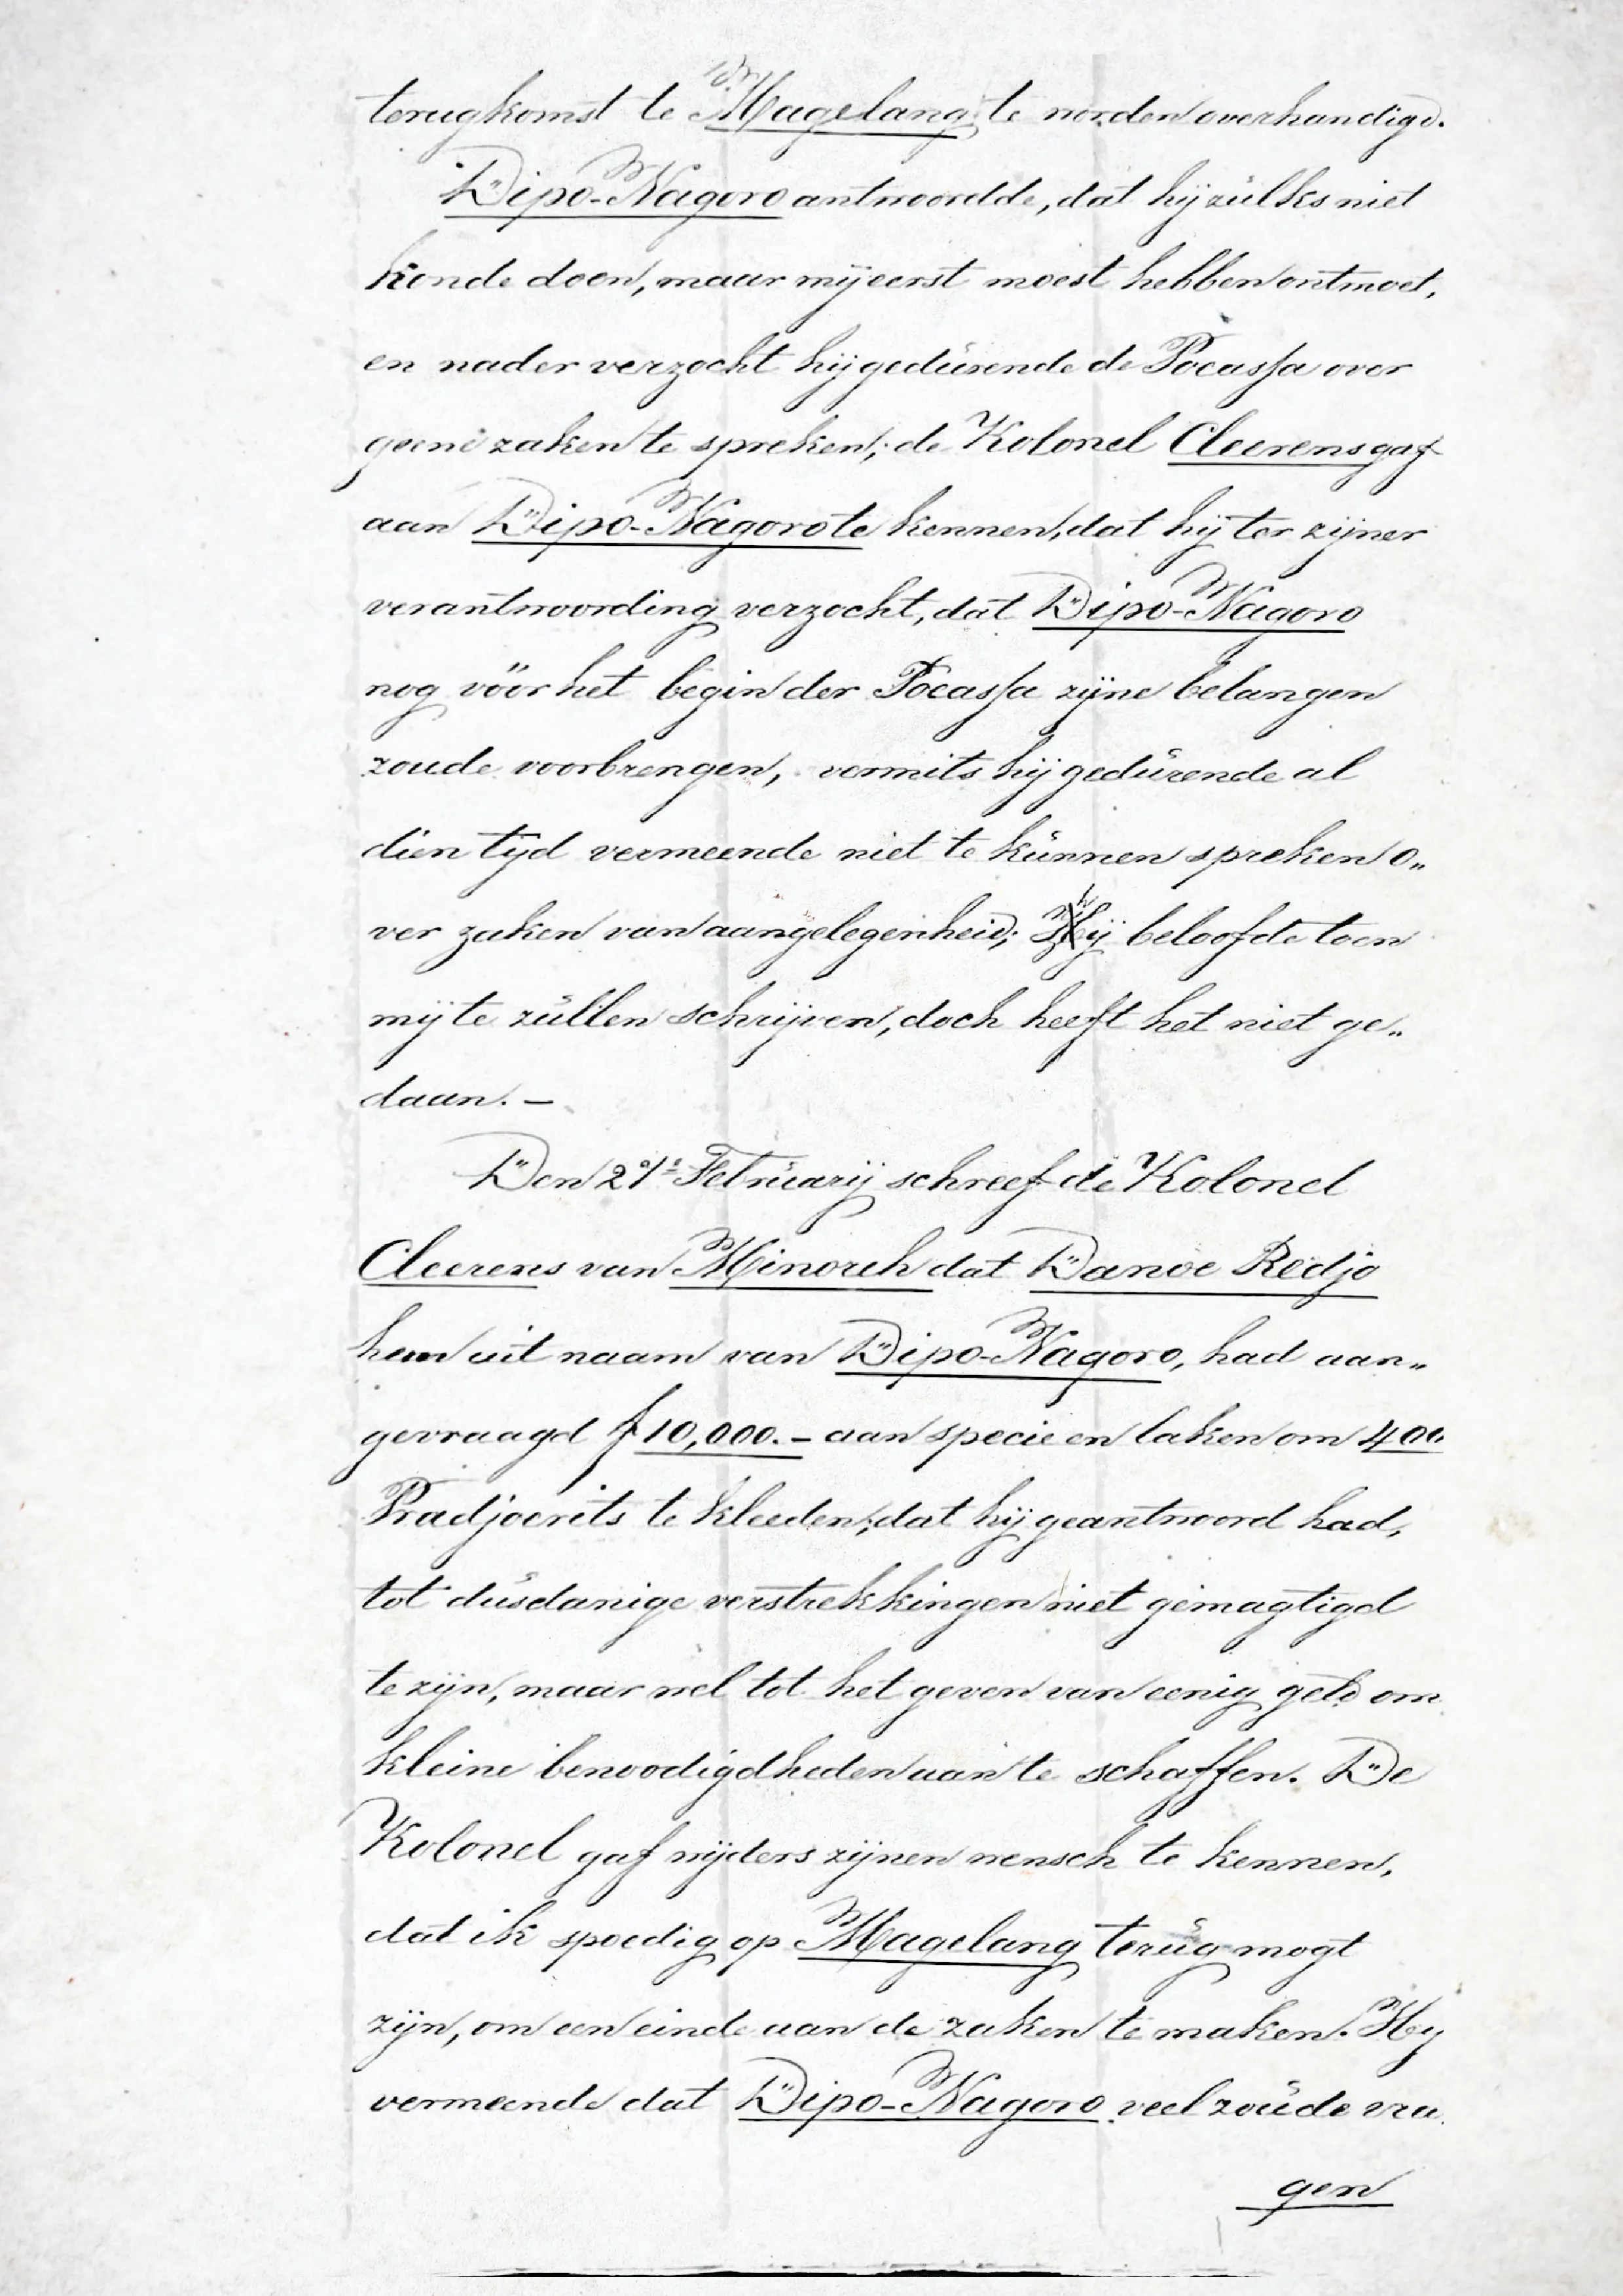 terugkomst te Magelang te worden overhandigd.
Dipo-Nagoro antwoordde, dat hij zulks niet
konde doen, maar mij eerst moest hebben ontmoet,
en nader verzocht hij gedurende de Poeassa over
geene zaken te spreken; de Kolonel Cleerens gaf
aan Dipo-Nagoro te kennen, dat hij ter zijner
verantwoording verzocht, dat Dipo-Nagoro
nog vóór het begin der Poeassa zijne belangen
zoude voorbrengen, vermits hij gedurende al
dien tijd vermeende niet te kunnen spreken o„
ver zaken van aangelegenheid; Hij beloofde toen
mij te zullen schrijven, doch heeft het niet ge„
daan. —
Den 21e Februarij schreef de Kolonel
Cleerens van Minoreh dat Danoe Redjo
hem uit naam van Dipo-Nagoro, had aan„
gevraagd f 10,000.— aan specie en laken om 400
Pradjoerits te kleeden; dat hij geantwoord had,
tot dusdanige verstrekkingen niet gemagtigd
te zijn, maar wel tot het geven van eenig geld om
kleine benoodigdheden aan te schaffen. De
Kolonel gaf wijders zijnen wensch te kennen,
dat ik spoedig op Magelang terug mogt
zijn, om een einde aan de zaken te maken. Hij
vermeende dat Dipo-Nagoro veel zoude vra
gen